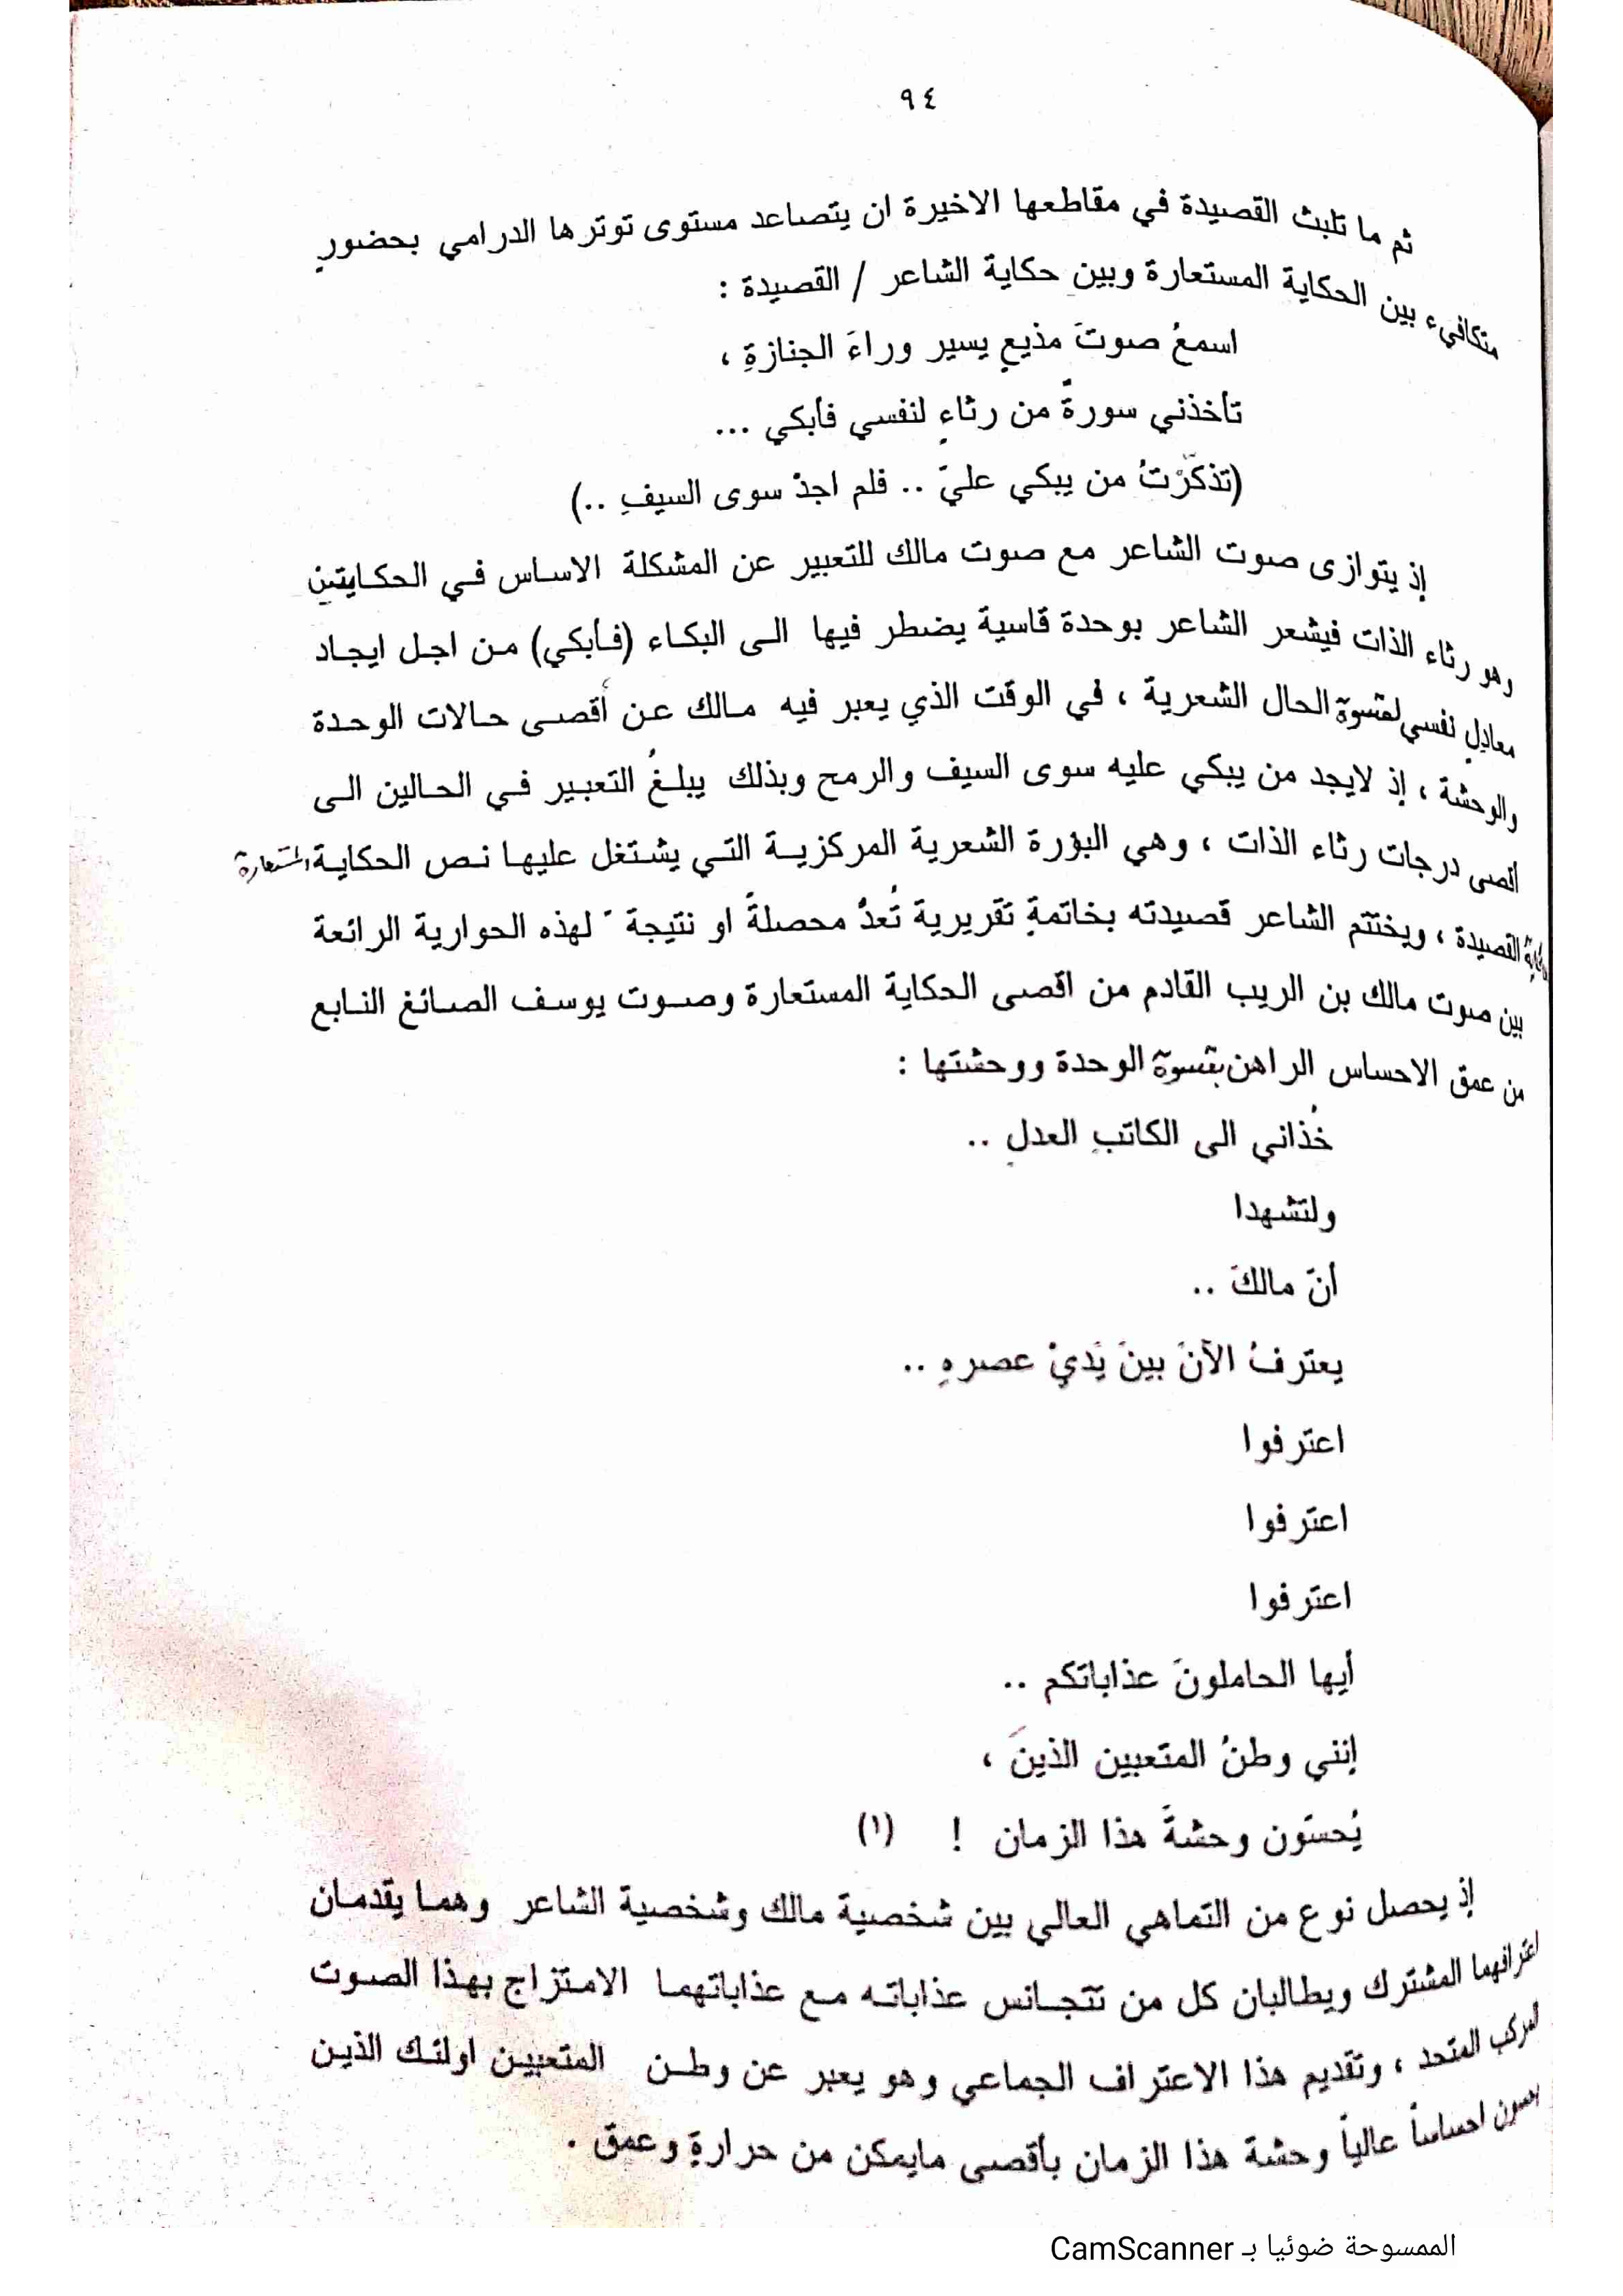 ٩٤
ثم ما تلبث القصيدة في مقاطعها الاخيرة ان يتصاعد مستوى توترها الدرامي بحضورٍ
متكافيء بين الحكاية المستعارة وبين حكاية الشاعر / القصيدة :
اسمعُ صوتَ مذيعٍ يسير وراءَ الجنازةِ ،
تأخذني سورةً من رثاءٍ لنفسي فأبكي ...
(تذكّرْتُ من يبكي عليَ .. فلم اجدْ سوى السيفِ ..)
إذ يتوازى صوت الشاعر مع صوت مالك للتعبير عن المشكلة الاساس في الحكايتين
وهو رثاء الذات فيشعر الشاعر بوحدة قاسية يضطر فيها الى البكاء (فأبكي) من اجل ايجاد
معادلٍ نفسي لقسوة الحال الشعرية ، في الوقت الذي يعبر فيه مالك عن أقصى حالات الوحدة
والوحشة ، إذ لايجد من يبكي عليه سوى السيف والرمح وبذلك يبلغُ التعبير في الحالين الى
اقصى درجات رثاء الذات ، وهي البؤرة الشعرية المركزية التي يشتغل عليها نص الحكاية المستعارة
القصيدة ، ويختتم الشاعر قصيدته بخاتمةٍ تقريرية تُعدُّ محصلةً او نتيجة ً لهذه الحوارية الرائعة
بين صوت مالك بن الريب القادم من اقصى الحكاية المستعارة وصوت يوسف الصائغ النابع
من عمق الاحساس الراهن بقسوة الوحدة ووحشتها :
خُذاني الى الكاتبِ العدلِ ..
ولتشهدا
أنّ مالكَ ..
يعترفُ الآنَ بينَ يَديْ عصرهِ ..
اعترفوا
اعترفوا
اعترفوا
أيها الحاملونَ عذاباتكم ..
إنني وطنُ المتعبين الذينَ ،
يُحسّون وحشةَ هذا الزمان ! (١)
إذ يحصل نوع من التماهي العالي بين شخصية مالك وشخصية الشاعر وهما يقدمان
اعترافهما المشترك ويطالبان كل من تتجانس عذاباته مع عذاباتهما الامتزاج بهذا الصوت
المركب المتحد ، وتقديم هذا الاعتراف الجماعي وهو يعبر عن وطن المتعبين اولئك الذين
يحسون احساساً عالياً وحشة هذا الزمان بأقصى مايمكن من حرارةٍ وعمق .
الممسوحة ضوئيا بـ CamScanner